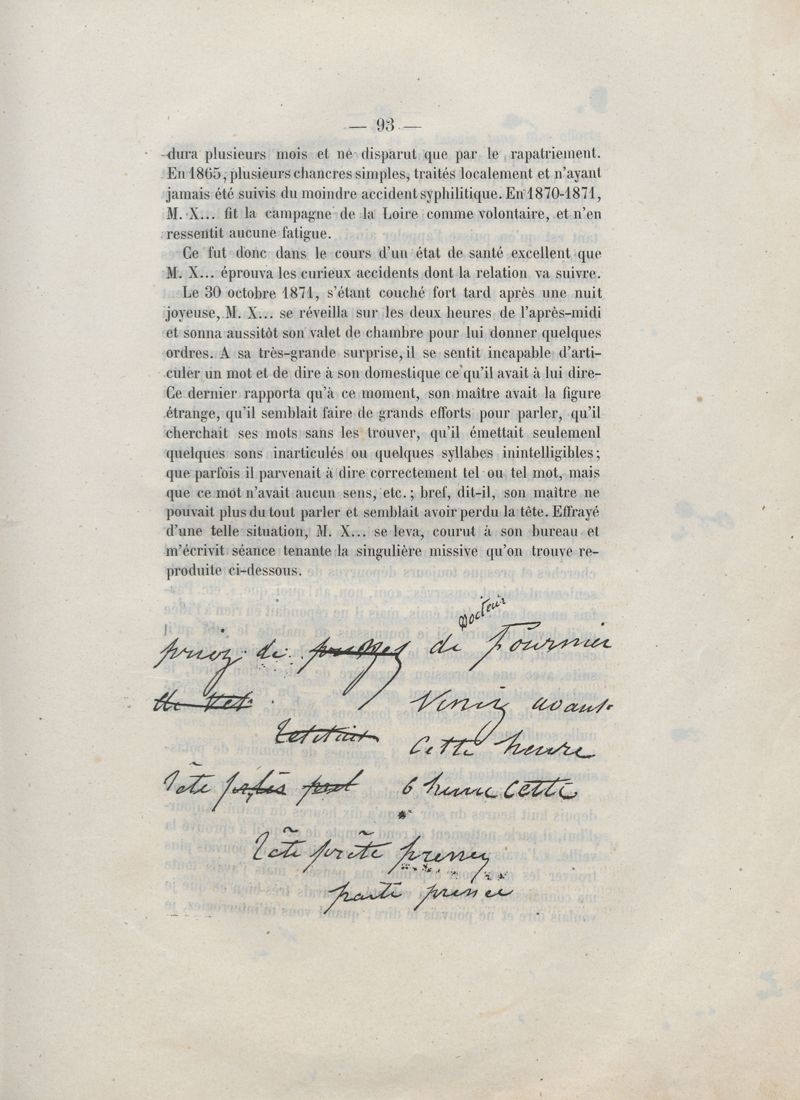 — 93 —
dura plusieurs mois et ne disparut que par le rapatriement.
En 1865, plusieurs chancres simples, traités localement et n'ayant
jamais été suivis du moindre accident syphilitique. En 1870-1871,
M. X... fit la campagne de la Loire comme volontaire, et n'en
ressentit aucune fatigue.
Ce fut donc dans le cours d'un état de santé excellent que
M. X... éprouva les curieux accidents dont la relation va suivre.
Le 30 octobre 1871, s'étant couché fort tard après une nuit
joyeuse, M. X... se réveilla sur les deux heures de l'après-midi
et sonna aussitôt son valet de chambre pour lui donner quelques
ordres. A sa très-grande surprise, il se sentit incapable d'arti-
culer un mot et de dire à son domestique ce qu'il avait à lui dire-
Ce dernier rapporta qu'à ce moment, son maître avait la figure
étrange, qu'il semblait faire de grands efforts pour parler, qu'il
cherchait ses mots sans les trouver, qu'il émettait seulemenl
quelques sons inarticulés ou quelques syllabes inintelligibles;
que parfois il parvenait à dire correctement tel ou tel mot, mais
que ce mot n'avait aucun sens, etc.; bref, dit-il, son maître ne
pouvait plus du tout parler et semblait avoir perdu la tête. Effrayé
d'une telle situation, M. X... se leva, courut à son bureau et
m'écrivit séance tenante la singulière missive qu'on trouve re-
produite ci-dessous.
Docteur
priez de de Fournier
Veniz avant
Cette heure
Tête 6 heure cette
Tête prête prenez
parti